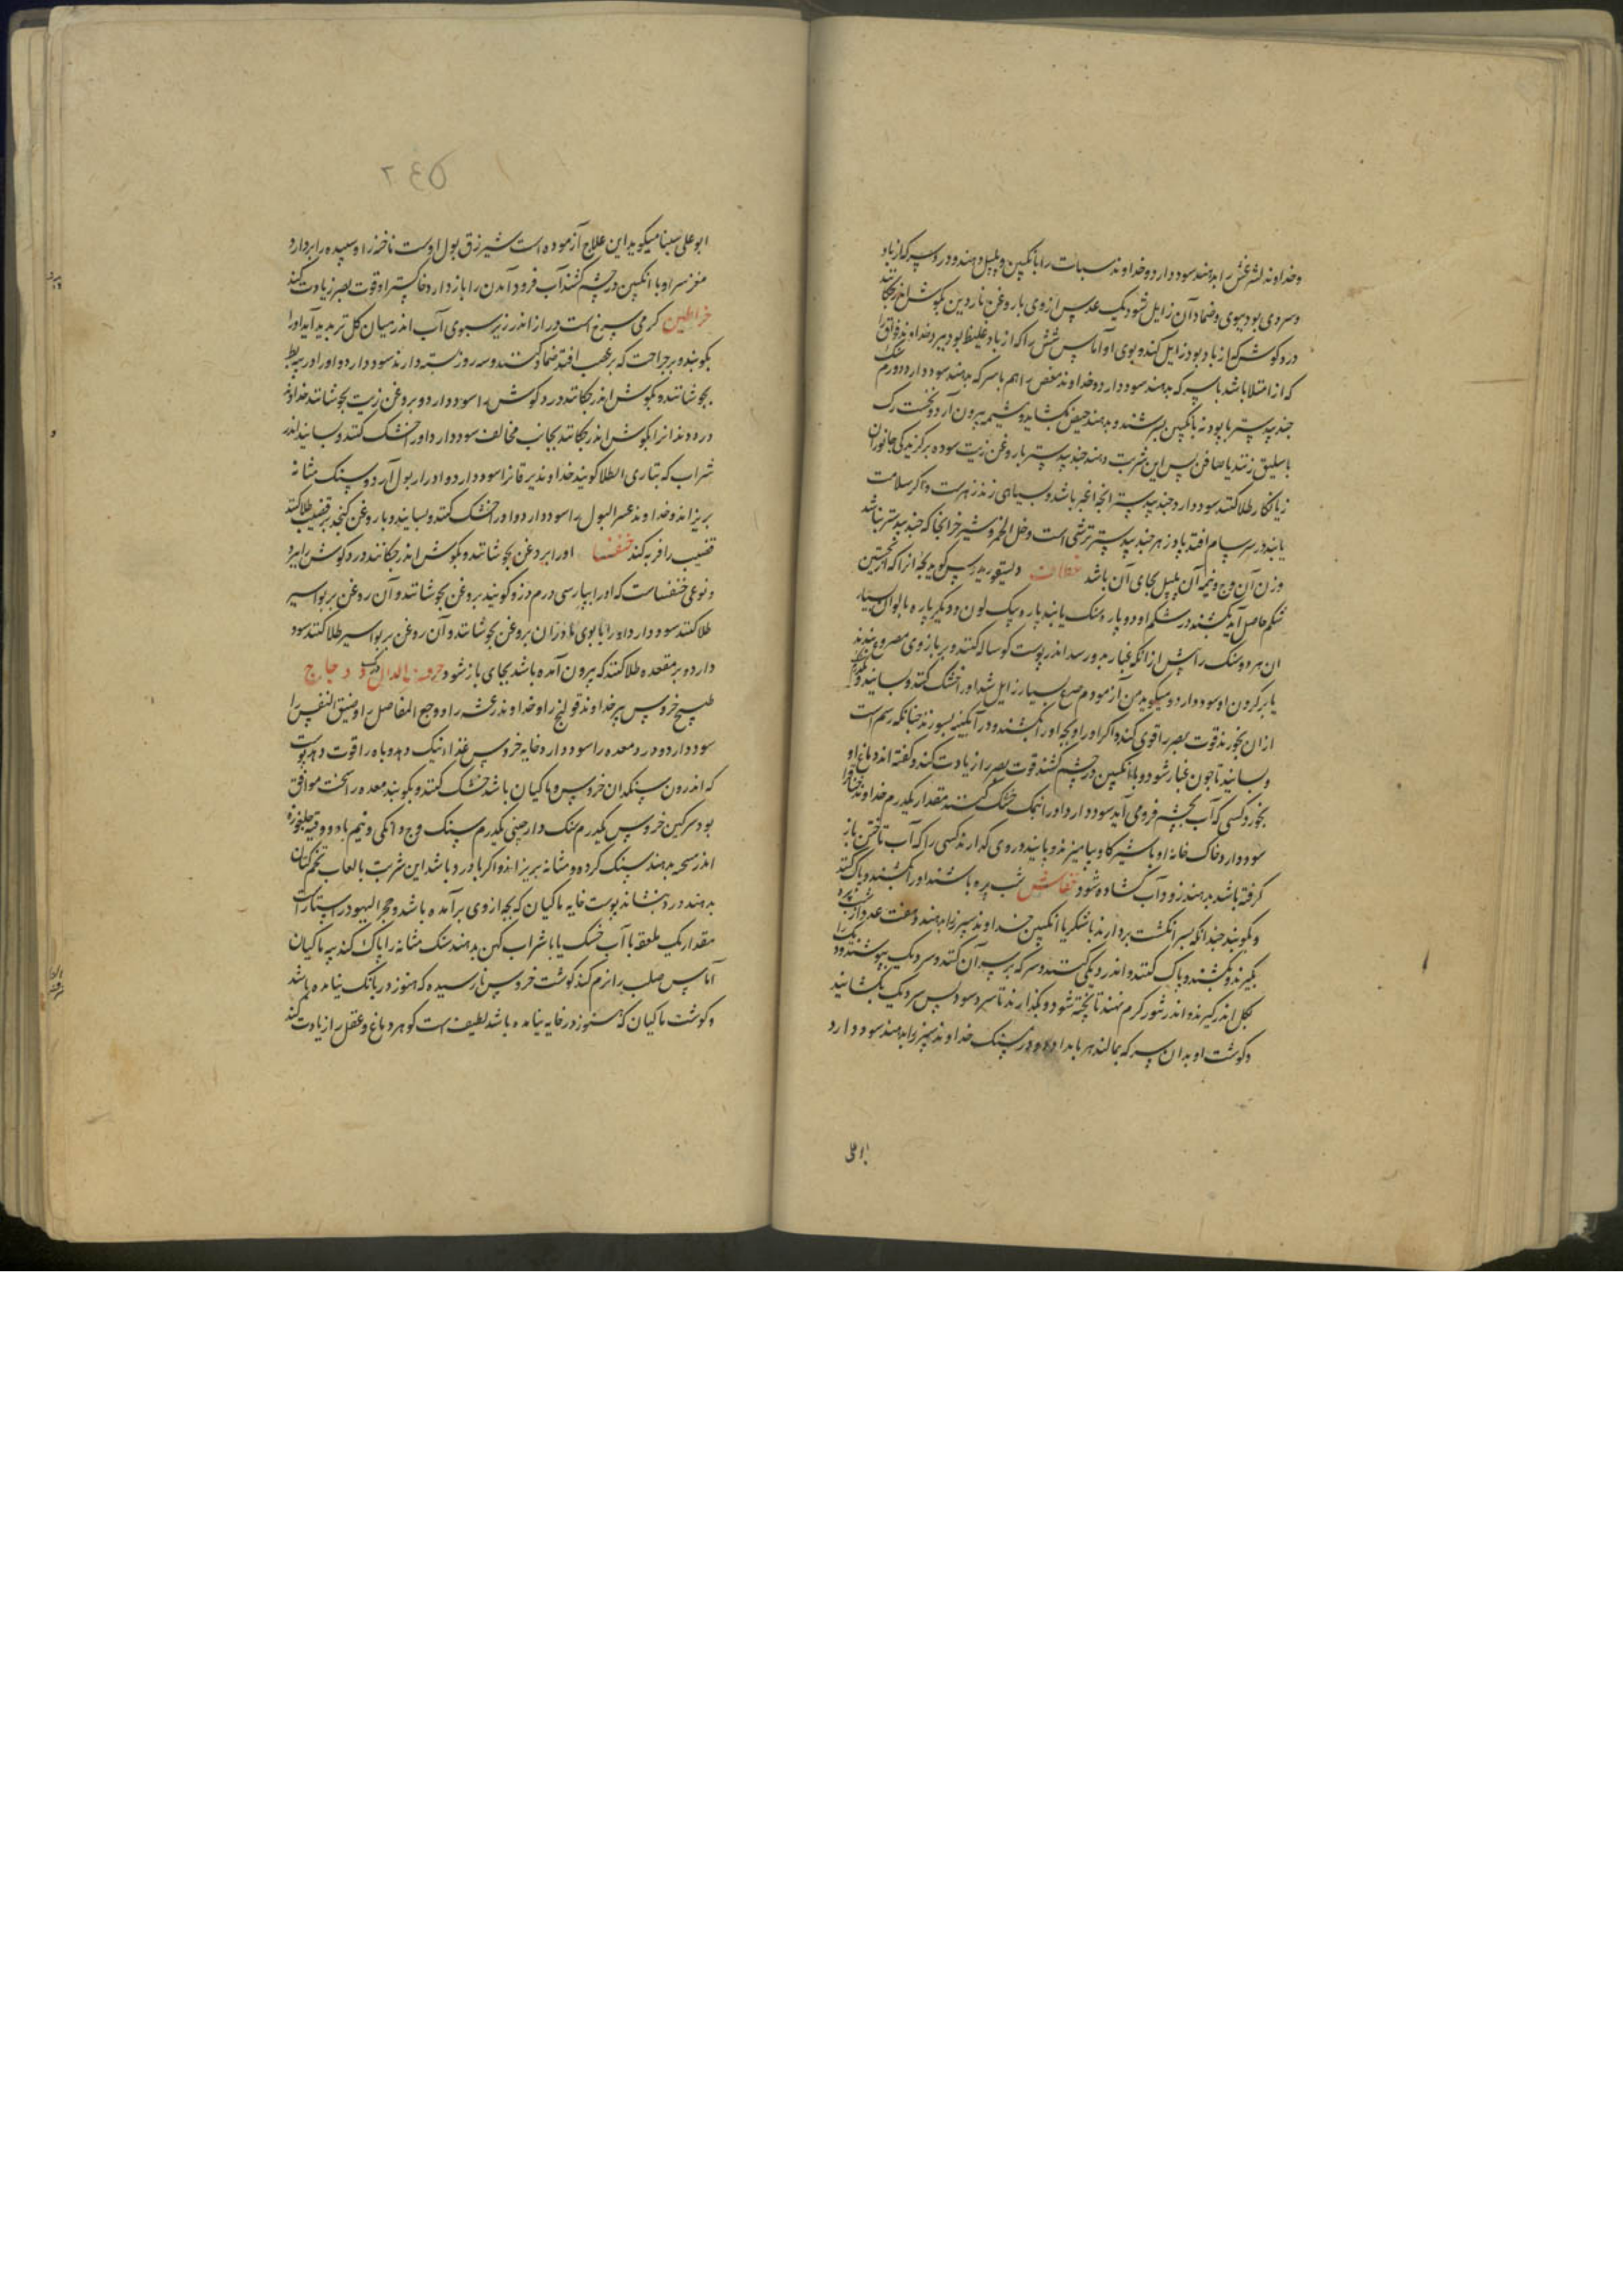 وخداوند لثرغش را بدهند سود دارد و خداوند سبات را با انکبین و پلپل دهند و درد سر که از باد
وسردی بود ببوی وضماد آن زایل شود یک عدس از وی با روغن ناردین بکوش اندر چکانند
درد کوش که از باد بود زایل کند و بوی او آماس شش را که از باد غلیظ بود ببرد خداوند فواق را
که از امتلا باشد با سرکه بدهند سود دارد و خداوند مغص را هم با سرکه بدهند سود دارد دو درم سنک
جندبیدستر با پودنه بانکبین بسرشند و بدهند حیض بکشاید و مشیمه بیرون آرد و نخست رک
باسلیق زنند یا صافن پس این شربت دهند جندبیدستر با روغن زیت سوده بر کزیدکی جانوران
زیانکار طلا کنند سود دارد و جندبیدستر آنچه اغبر باشد و بسیاهی زند زهرست و اکر سلامت
یابند در سرسام افتد پادزهر جندبیدستر ترشی است و خل الخمر و شیر خر آنجا که جندبیدستر نباشد
وزن آن وج و نیمه آن پلپل بجای آن باشد خطاف دیسقوریدوس کوید بچه او را که از نخستین
شکم حاصل آید بکشند در شکم او دو پاره سنک یابند پاره یک لون و دیکر پاره بالوان بسیار
آن هر دو سنک را پیش از آنکه غبار بدو رسد اندر پوست کوساله کنند و بر بازوی مصروع بندند
یا بر کردن او سود دارد و میکوید من آزمودم صرع بسیار زایل شد او را خشک کنند و بسایند
از آن بخورند قوت بصر را قوی کند و اکر او را و بچه او را بکشند و در آبکینه بسوزند چنانکه رسم است
و بسایند تا چون غبار شود و با انکبین در چشم کشند قوت بصر را زیادت کند و کفته اند دماغ او
بخورد کسی که آب بچشم فرو می آید سود دارد و او را نمک خشک کنند مقدار یکدرم خداوند خناق را
سود دارد و خاک خانه او با شیر کاو بیامیزند و بپایند در وی کدارند کسی را که آب تاختن باز
کرفته باشد بدهند زود آب کشاده شود خفاش شب پره باشد او را بکشند و پاک کنند
و بکوبند چندانکه بسر انکشت بردارند با شکر یا انکبین خداوند سپرز را بدهند و هفت عدد از شب پره
بکیرند و بکشند و پاک کنند و اندر دیکی کنند و سرکه بر سر آن کنند و سر دیک بپوشند و دیک را
بکل اندر کیرند و اندر تنور کرم نهند تا پخته شود و بکذارند تا سرد شود پس سر دیک بکشایند
و کوشت او بدان سرکه بمالند هر بامداد دو درم سنک خداوند سپرز را بدهند سود دارد
ابوعلی
۲٤٥
ابوعلی سینا میکوید این علاج آزموده است شیرزق بول اوست ناخنه را و سپیده را بردارد
مغز سر او با انکبین در چشم کشند آب فرود آمدن را بازدارد و خاکستر او قوت بصر زیادت کند
خراطین کرمی سرخ است دراز اندر زیر سبوی آب اندر میان کل تر پدید آید او را
بکوبند و بر جراحت که بر عصب افتد ضماد کنند و سه روز بسته دارند سود دارد و او را در پیه بط
بجوشانند و بکوش اندر چکانند درد کوش را سود دارد و بروغن زیت بجوشانند خداوند
درد دندانرا بکوش اندر چکانند بجانب مخالف سود دارد و او را خشک کنند و بسایند اندر
شراب که بتازی الطلا کویند خداوند یرقانرا سود دارد و ادرار بول آرد و سنک مثانه
بریزاند و خداوند عسر البول را سود دارد و او را خشک کنند و بسایند و با روغن کنجد بر قضیب طلا کنند
قضیب را فربه کند خنفسا او را بروغن بجوشانند و بکوش اندر چکانند درد کوش را ببرد
و نوعی خنفساست که او را بپارسی درم دزو کویند بروغن بجوشانند و آن روغن بر بواسیر
طلا کنند سود دارد و او را با بوی مادران بروغن بجوشانند و آن روغن بر بواسیر طلا کنند سود
دارد و بر مقعده طلا کنند که بیرون آمده باشد بجای باز شود حرف الدال دجاج
طبیخ خروس پیر خداوند قولنج را و خداوند رعشه را و وجع المفاصل را و ضیق النفس را
سود دارد و درد معده را سود دارد و خایه خروس غذاء نیک دهد و باه را قوت دهد پوست
که اندرون سنکدان خروس و ماکیان باشد خشک کنند و بکوبند معده را سخت موافق
بود سرکین خروس یکدرم سنک دارچینی یکدرم سنک وج دانکی و نیم با دو وقیه جلبوزه
اندر صحه بدهند سنک کرده و مثانه بریزاند و اکر با درد باشد این شربت با لعاب تخم کتان
بدهند درد بنشاند پوست خایه ماکیان که بچه از وی برآمده باشد و حجر الیهود راستاراست
مقدار یک ملعقه با آب خسک یا با شراب کهن بدهند سنک مثانه را پاک کند پیه ماکیان
آماس صلب را نرم کند کوشت خروس نارسیده که هنوز در بانک نیامده باشد
و کوشت ماکیان که هنوز در خایه نیامده باشد لطیف است کوهر دماغ و عقل را زیادت کند